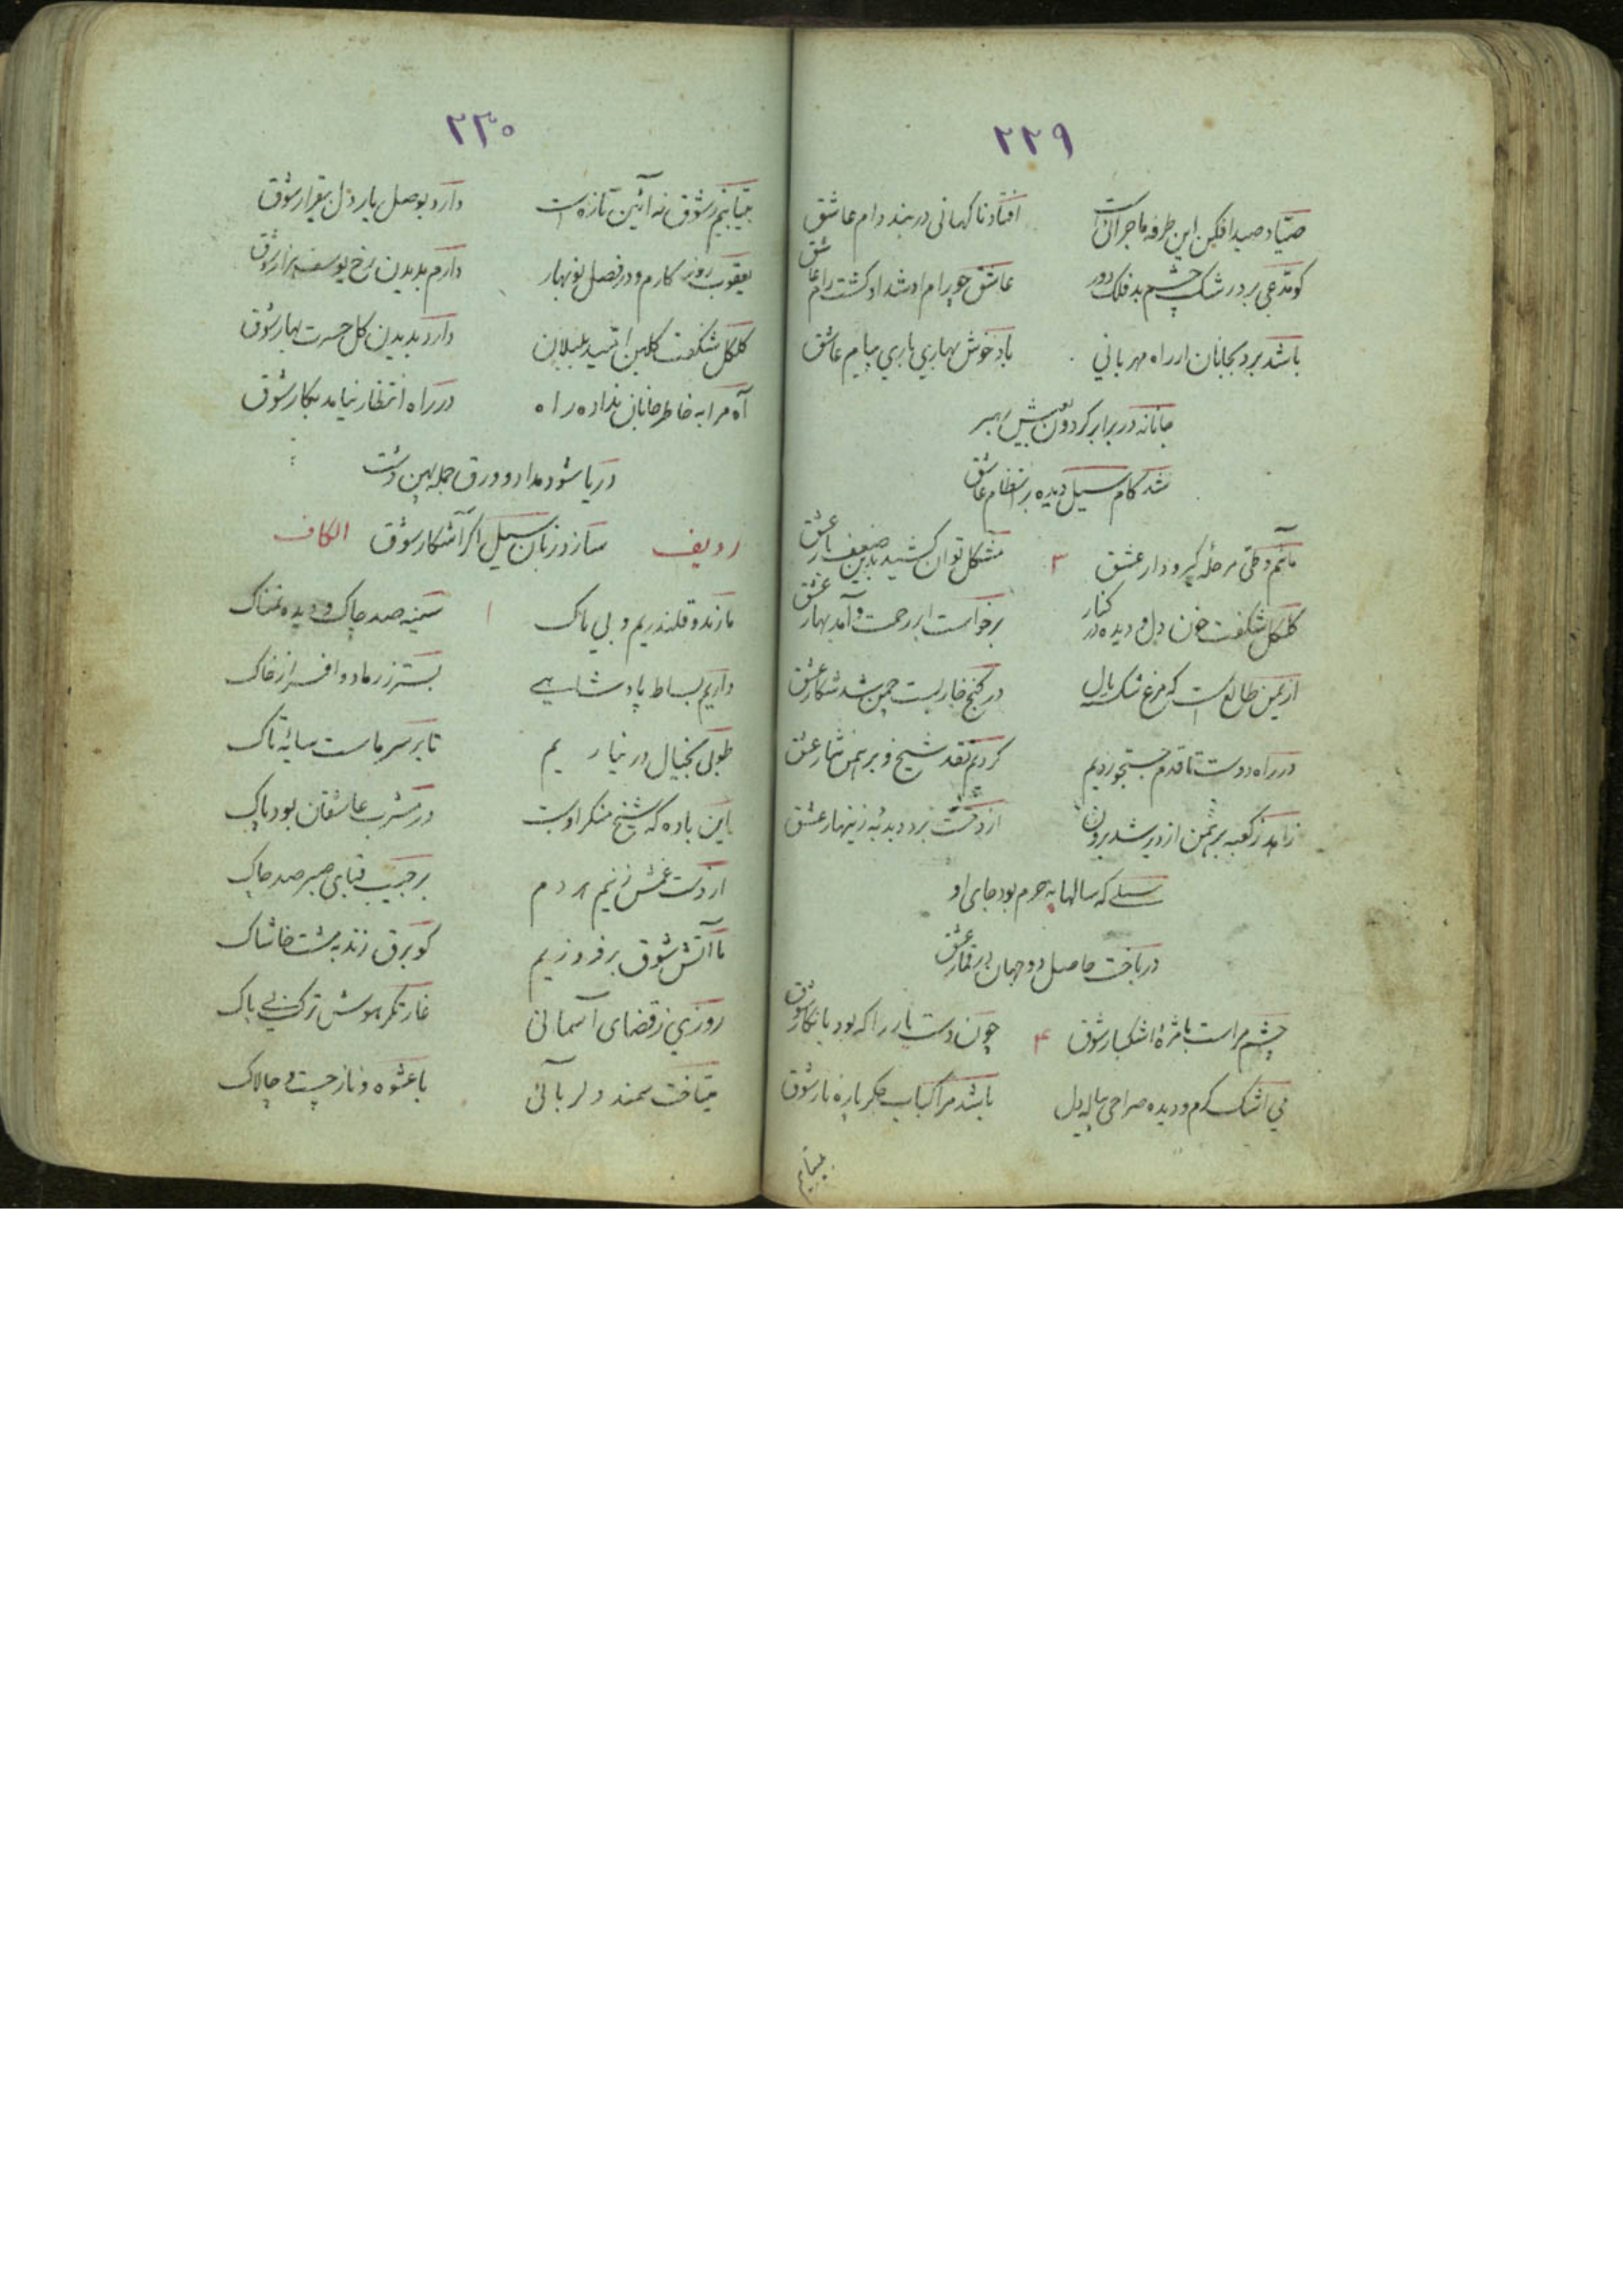 ۲۲۹
صیاد صید افکن این طرفه ماجرائی است افتاد ناگهانی در بند دام عاشق
کو مدعی برد رشک چشم بد فلک دور عاشق چو رام او شد او گشت رام عاشق
باشد برد بجانان از راه مهربانی باد خوش بهاری باری پیام عاشق
جانانه در برابر گردون بعیش رهبر
شد کام سیل دیده بر انتظام عاشق
مائیم و طی مرحلهٔ گیرودار عشق ۳ مشکل توان کشید باین ضعف بار عشق
گلگل شکفت خون دل و دیده در کنار برخواست ابر رحمت و آمد بهار عشق
از یمن طالع است که مرغ شکسته بال در کنج خار بست چمن شد شکار عشق
در راه دوست تا قدم جستجو زدیم کردیم نقد شیخ و برهمن نثار عشق
زاهد ز کعبه برهمن از دیر شد برون از دست برد دبدبهٔ زینهار عشق
سیلی که سالها به حرم بود جای او
در باخت حاصل دو جهان در قمار عشق
چشم مراست با مژهٔ اشکبار شوق ۴ چون دست یار را که بود با نگار شوق
می اشک گرم و دیده صراحی پیاله دل باشد مرا کباب جگر پاره نار شوق
بیتابیم
۲۳۰
بیتابیم ز شوق نه آئین تازه است دارد بوصل یار دل بیقرار شوق
یعقوب روزگارم و در فصل نوبهار دارم بدیدن رخ یوسف هزار شوق
گلگل شکفت گلبن امید بلبلان دارد بدیدن گل حسرت بهار شوق
آه مرا به خاطر جانان نداده راه در راه انتظار نیامد بکار شوق
دریا شود مداد و ورق جمله پهن دشت
ردیف سازد زبان سیل اگر آشکار شوق الکاف
ما رند و قلندریم و بی باک ۱ سینه صد چاک و دیده نمناک
داریم بساط پادشاهی بستر ز رماد و افسر از خاک
طوبی بخیال در نیاریم تا بر سر ماست سایهٔ تاک
این باده که شیخ منکر اوست در مشرب عاشقان بود پاک
از دست غمش زنیم هر دم بر جیب قبای صبر صد چاک
ما آتش شوق برفروزیم کو برق زند به مشت خاشاک
روزی ز قضای آسمانی غارتگر هوش ترک بی باک
میتاخت سمند دلربائی با عشوه و ناز چست و چالاک